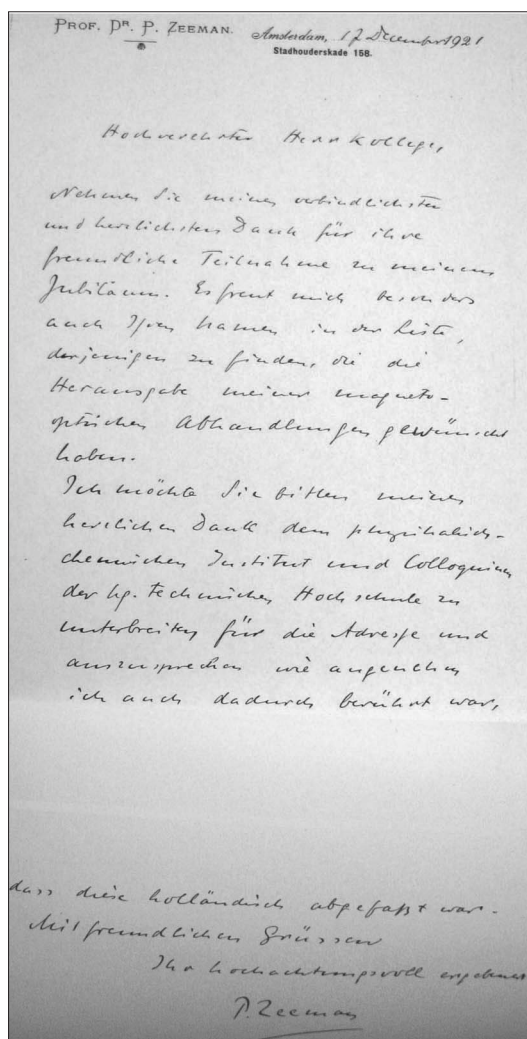 PROF. DR. P. ZEEMAN.
Amsterdam, 17 December 1921
Stadhouderskade 158.
Hochverehrter Herr Kollege,
Nehmen Sie meinen verbindlichsten
und herzlichsten Dank für ihre
freundliche Teilnahme zu meinem
Jubiläum. Es freut mich besonders
auch Ihren Namen in der Liste,
derjenigen zu finden, die die
Herausgabe meiner magneto-
optischen Abhandlungen gewünscht
haben.
Ich möchte Sie bitten meinen
herzlichen Dank dem physikalisch-
chemischen Institut und Colloquium
der kg. technischen Hochschule zu
unterbreiten für die Adresse und
auszusprechen wie angenehm
ich auch dadurch berührt war,
dass diese holländisch abgefaßt war.
Mit freundlichen Grüssen
Ihr hochachtungsvoll ergebener
P. Zeeman